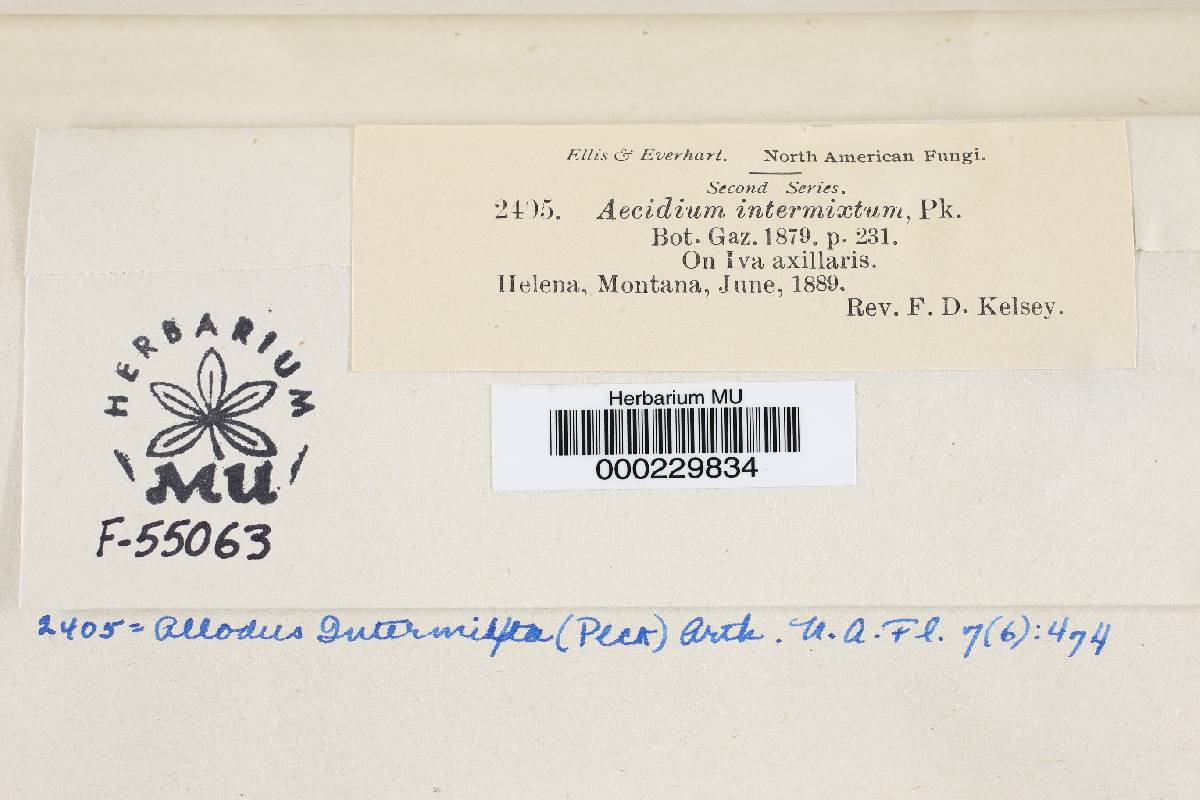 Ellis & Everhart. North American Fungi.
Second Series.
2405. Aecidium intermixtum, Pk.
Bot. Gaz. 1879. p. 231.
On Iva axillaris.
Helena, Montana, June, 1889.
Rev. F. D. Kelsey.
HERBARIUM
MU
F-55063
Herbarium MU
000229834
2405 = Allodus Intermixta (Peck) Arth. N. A. Fl. 7(6):474